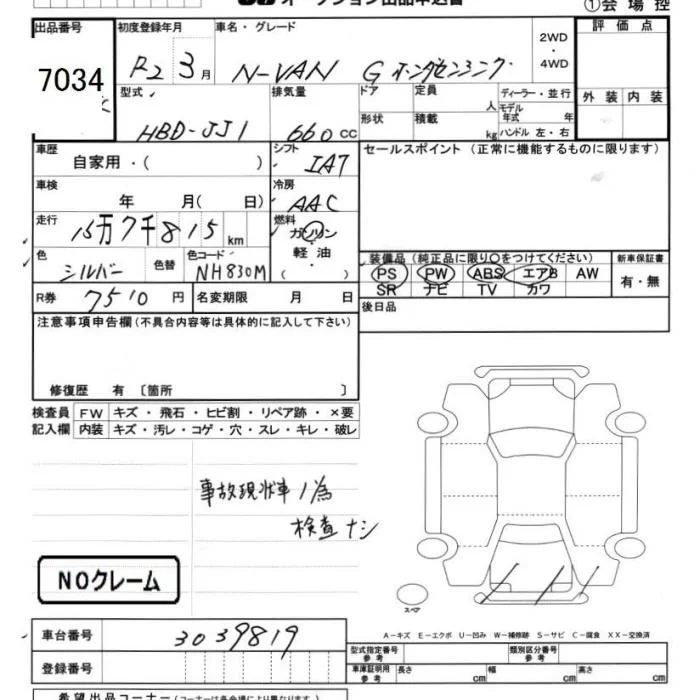 オークション出品申込書
①会場控
出品番号 初度登録年月 車名・グレード 評価点
7034 R2 3月 N-VAN G ホンダセンシング 2WD・4WD
型式 排気量 ドア 定員 人 ディーラー・並行 外装 内装
HBD-JJ1 660CC 形状 積載 kg モデル年式 年 ハンドル 左・右
車歴 シフト セールスポイント (正常に機能するものに限ります)
自家用・( ) IAT
車検 年 月(日) 冷房 AAC
走行 15万7千815km 燃料 ガソリン・軽油・( )
色 シルバー 色替 色コード NH830M
装備品(純正品に限り○をつけてください) 新車保証書
PS PW ABS エアB AW 有・無
SR ナビ TV カワ
R券 7510円 名変期限 月 日 後日品
注意事項申告欄(不具合内容等は具体的に記入して下さい)
修復歴 有 〔箇所 〕
検査員 FW キズ・飛石・ヒビ割・リペア跡・×要
記入欄 内装 キズ・汚レ・コゲ・穴・スレ・キレ・破レ
事故現状車 1/為
検査ナシ
NOクレーム
スペア
A-キズ E-エクボ U-凹み W-補修跡 S-サビ C-腐食 XX-交換済
車台番号 3039819
型式指定番号 参考 類別区分番号 参考
登録番号 車庫証明用 参考 長さ cm 幅 cm 高さ cm
希望出品コーナー(コーナーは各会場により異なります)